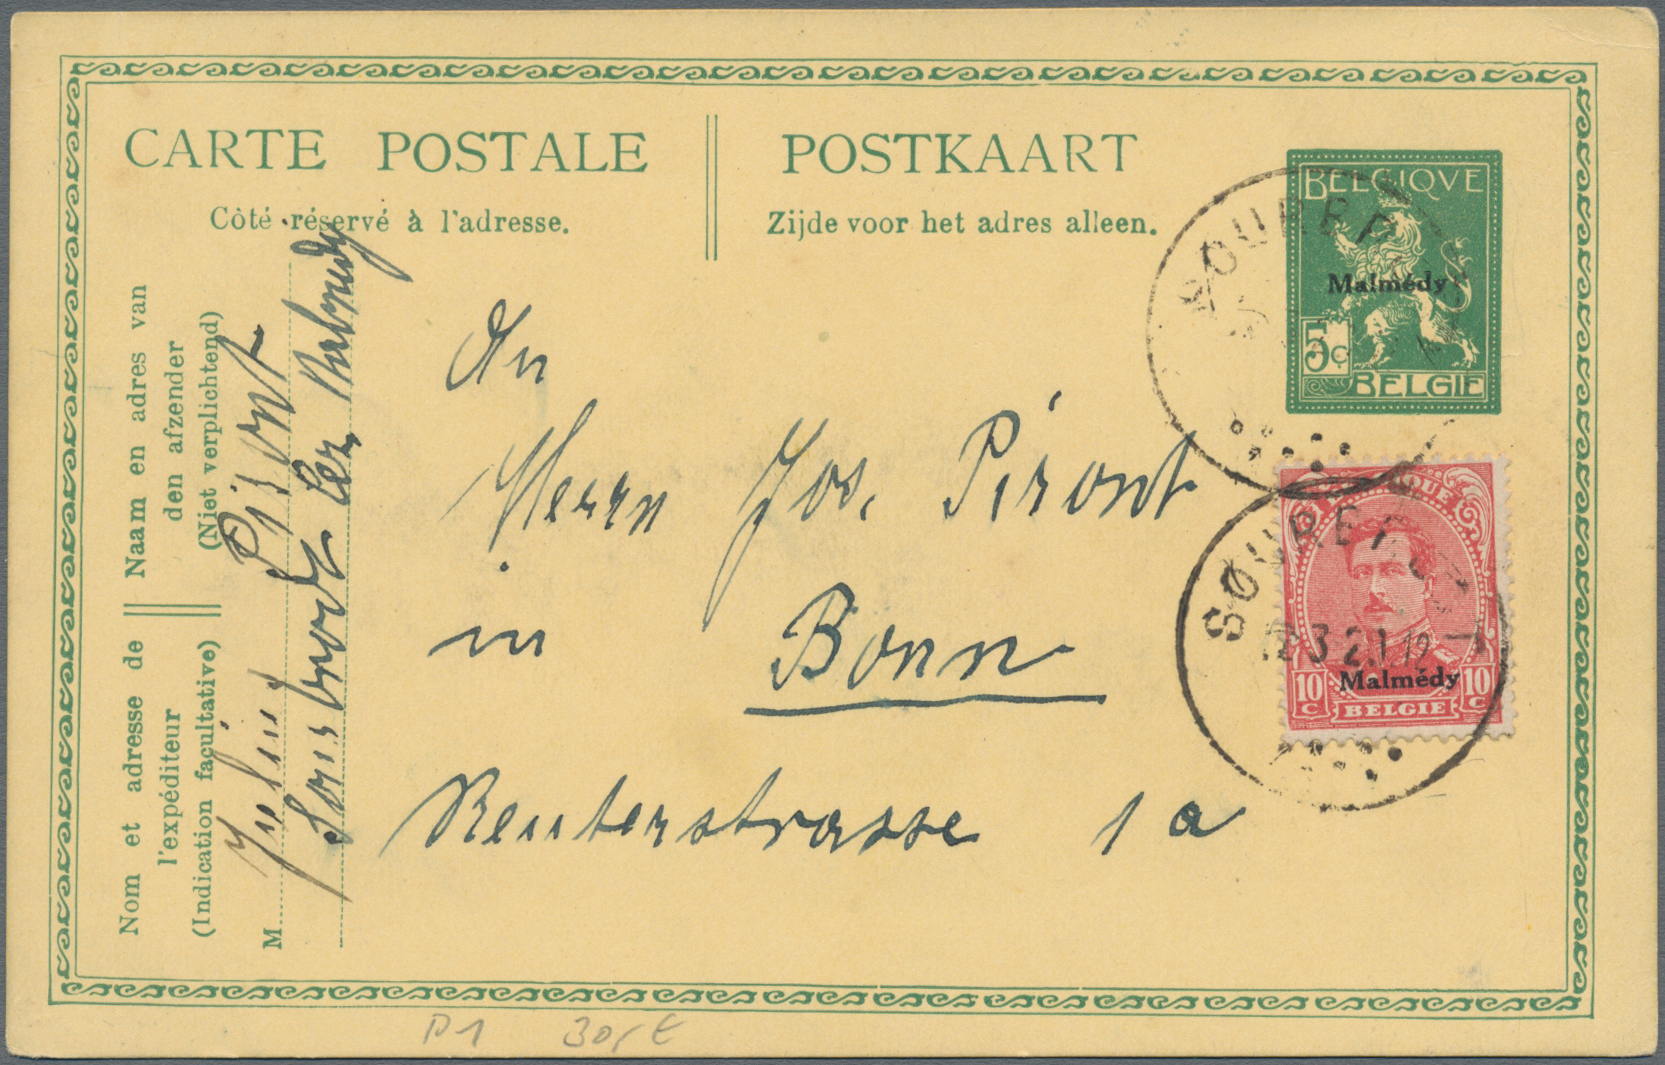 CARTE POSTALE
POSTKAART
Côté réservé à l'adresse.
Zijde voor het adres alleen.
BELGIQVE
Malmédy
5c
BELGIE
Naam en adres van
den afzender
(Niet verplichtend)
Nom et adresse de
l'expéditeur
(Indication facultative)
M
Piront
Sourbrodt
An
Herrn Jos. Piront
in Bonn
Reuterstrasse 1a
SOURB
SOURB
3 2.1 19
Malmédy
10 c BELGIE 10 c